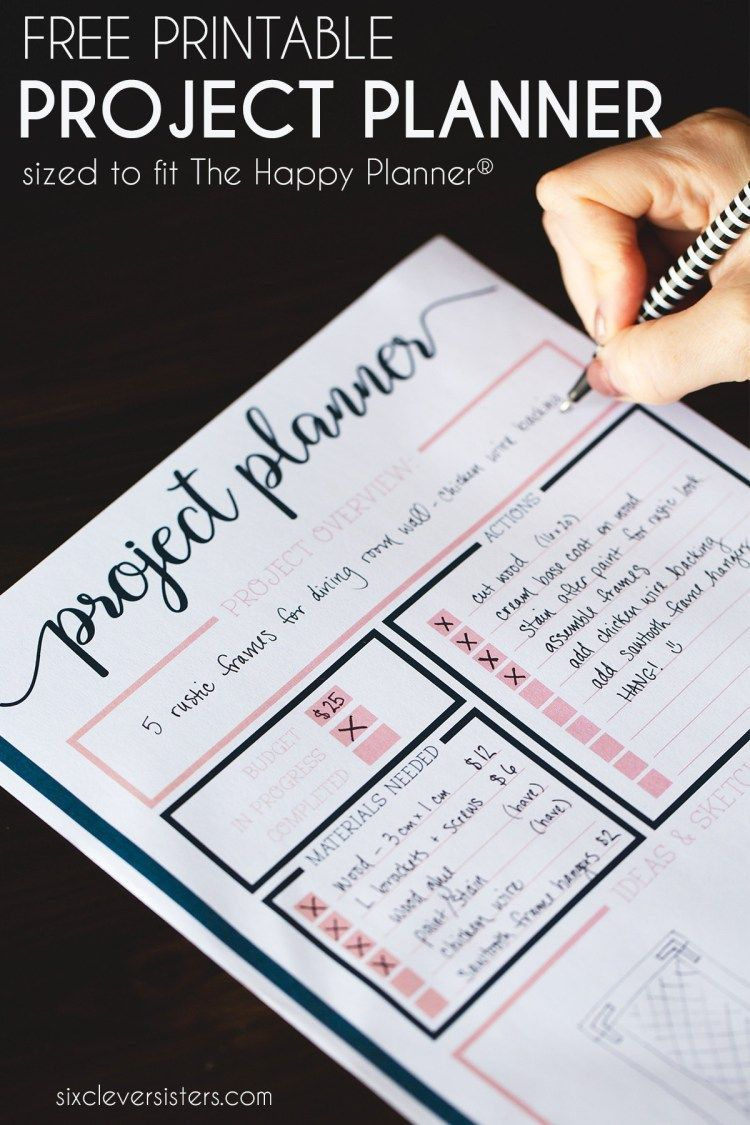 FREE PRINTABLE
PROJECT PLANNER
sized to fit The Happy Planner®
project planner
PROJECT OVERVIEW:
5 rustic frames for dining room wall - chicken wire backing
BUDGET $25
IN PROGRESS X
COMPLETED
ACTIONS
X cut wood (16x20)
X cream base coat on wood
X stain after paint for rustic look
X assemble frames
add chicken wire backing
add sawtooth frame hangers
HANG! ☺
MATERIALS NEEDED
X wood - 3cm x 1cm $12
X L brackets + screws $6
X wood glue (have)
X paint/stain (have)
chicken wire
sawtooth frame hangers $2
IDEAS & SKETCH
sixcleversisters.com